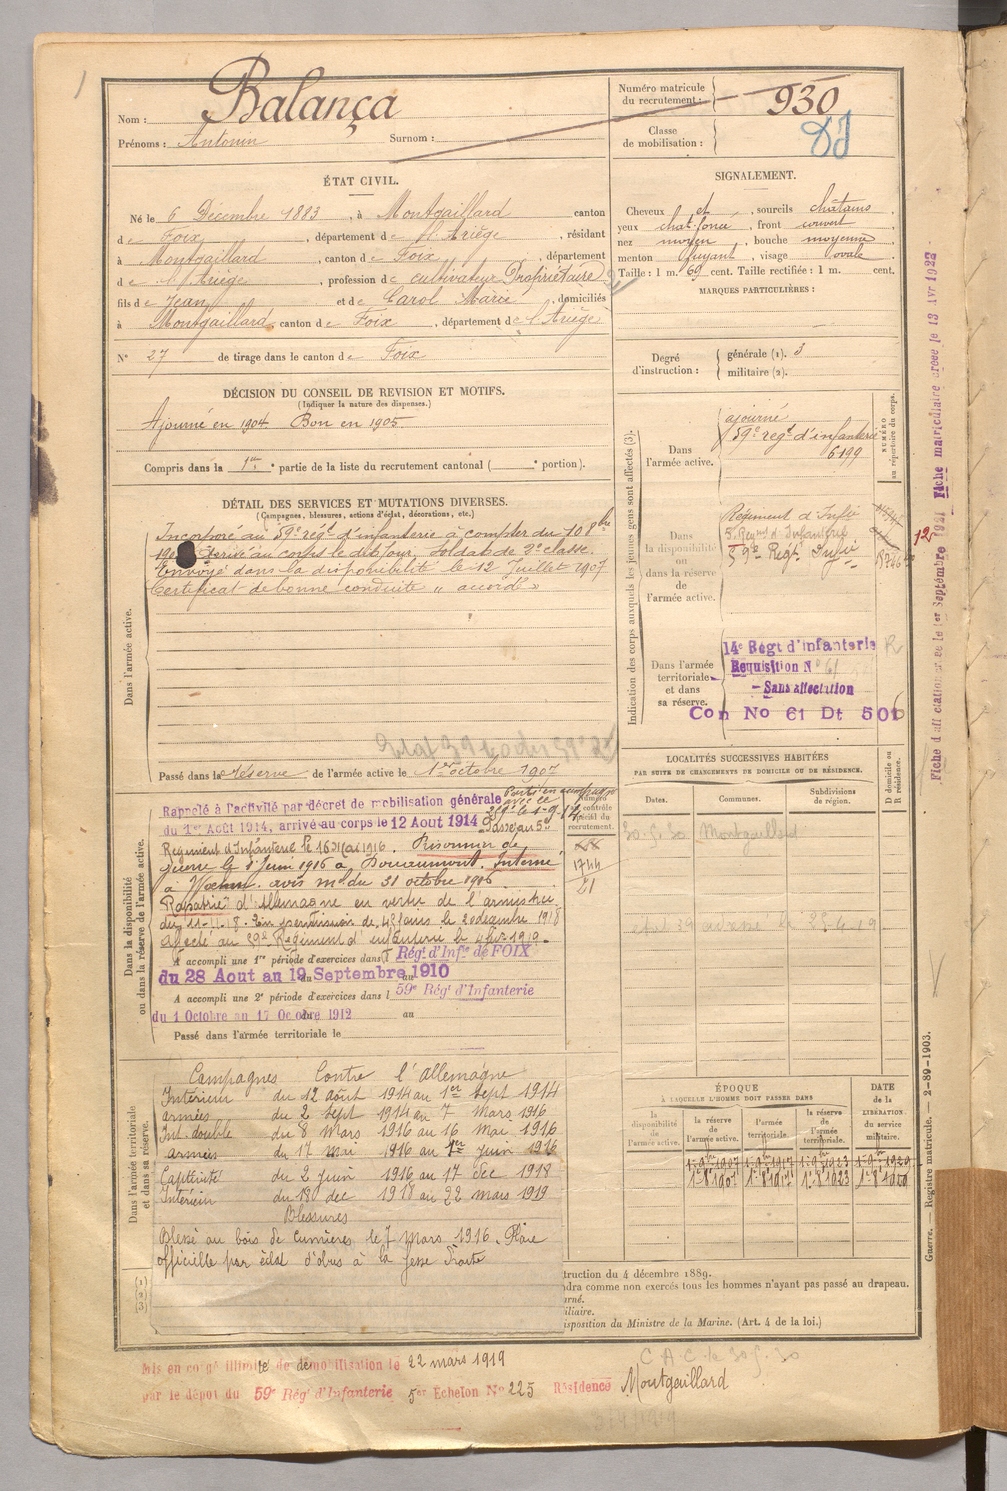 Nom : Balança
Prénoms : Antonin Surnom :
Numéro matricule du recrutement : 930
Classe de mobilisation :
ÉTAT CIVIL.
Né le 6 Décembre 1883, à Montgaillard canton
de Foix, département de l'Ariège, résidant
à Montgaillard, canton de Foix, département
de l'Ariège, profession de cultivateur Propriétaire
fils de Jean et de Carol Marie, domiciliés
à Montgaillard, canton de Foix, département de l'Ariège
N° 27 de tirage dans le canton de Foix
SIGNALEMENT.
Cheveux et, sourcils châtains
yeux chat. foncé, front couvert
nez moyen, bouche moyenne
menton fuyant, visage ovale
Taille : 1 m. 69 cent. Taille rectifiée : 1 m. cent.
MARQUES PARTICULIÈRES :
Degré d'instruction : générale (1). 3
militaire (2).
DÉCISION DU CONSEIL DE REVISION ET MOTIFS.
(Indiquer la nature des dispenses.)
Ajourné en 1904 Bon en 1905
Compris dans la 1re partie de la liste du recrutement cantonal ( portion).
DÉTAIL DES SERVICES ET MUTATIONS DIVERSES.
(Campagnes, blessures, actions d'éclat, décorations, etc.)
Dans l'armée active.
Incorporé au 59e régt d'infanterie à compter du 10 8bre
Arrivé au corps le dit jour, soldat de 2e classe.
Envoyé dans la disponibilité le 12 Juillet 1907
Certificat de bonne conduite "accordé"
Passé dans la réserve de l'armée active le 1er octobre 1907
Indication des corps auxquels les jeunes gens sont affectés (3).
NUMÉRO au répertoire du corps.
Dans l'armée active.
ajourné
59e régt d'infanterie
6199
Dans la disponibilité ou dans la réserve de l'armée active.
Régiment d'Infie
5e Regimt d'Infanterie
59e Régt Infie
Dans l'armée territoriale et dans sa réserve.
14e Régt d'infanterie
Requisition N° 61
Sans affectation
Con No 61 Dt 501
Fiche d'affectation créée le 1er Septembre 1921 Fiche matriculaire créée le 13 Avr 1922
Dans la disponibilité ou dans la réserve de l'armée active.
Rappelé à l'activité par décret de mobilisation générale
du 1er Août 1914, arrivé au corps le 12 Aout 1914
Passé au 5e
Régiment d'Infanterie le 16 Mai 1916. Prisonnier de
guerre le 1 Juin 1916 à Douaumont. Interné
à avis md du 31 octobre 1916
Rapatrié d'Allemagne en vertu de l'armistice
du 11-11-18. En permission de le 20 decembre 1918
Affecté au 59e Regiment d'infanterie le
A accompli une 1re période d'exercices dans l Régt d'Infie de FOIX
du 28 Aout au 19 Septembre 1910
A accompli une 2e période d'exercices dans l 59e Régt d'Infanterie
du 1 Octobre au 17 Octobre 1912 au
Passé dans l'armée territoriale le
1744
21
LOCALITÉS SUCCESSIVES HABITÉES
PAR SUITE DE CHANGEMENTS DE DOMICILE OU DE RÉSIDENCE.
Dates. Communes. Subdivisions de région. D domicile ou R résidence.
30-5-30 Montgaillard
ÉPOQUE
À LAQUELLE L'HOMME DOIT PASSER DANS
la disponibilité de l'armée active. la réserve de l'armée active. l'armée territoriale. la réserve de l'armée territoriale. DATE de la LIBÉRATION du service militaire.
Dans l'armée territoriale et dans sa réserve.
Campagnes Contre l'allemagne
Intérieur du 12 août 1914 au 1er Sept 1914
armées du 2 Sept 1914 au 7 Mars 1916
Int. double du 8 Mars 1916 au 16 Mai 1916
armées du 17 mai 1916 au 1er juin 1916
Captivité du 2 juin 1916 au 17 dec 1918
Intérieur du 18 dec 1918 au 22 mars 1919
Blessures
Blessé au bois de Cumières le 7 mars 1916. Plaie
officielle par éclat d'obus à la fesse droite
(1) (2) (3)
truction du 4 décembre 1889.
dra comme non exercés tous les hommes n'ayant pas passé au drapeau.
urné.
iliaire.
isposition du Ministre de la Marine. (Art. 4 de la loi.)
Guerre. — Registre matricule. — 2-89-1903.
Mis en congé illimité de démobilisation le 22 mars 1919
par le dépôt du 59e Régt d'Infanterie 5er Echelon No 225 Résidence Montgaillard
C.A.C. le 30.5.30